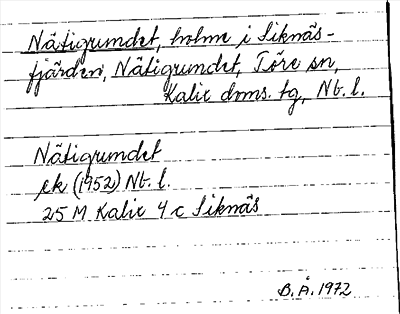 Nätigrundet, holme i Siknäs-
fjärden, Nätigrundet, Töre sn,
Kalix doms. tg, Nb. l.
Nätigrundet
ek (1952) Nb. l.
25 M Kalix 4 c Siknäs
B. Å. 1972